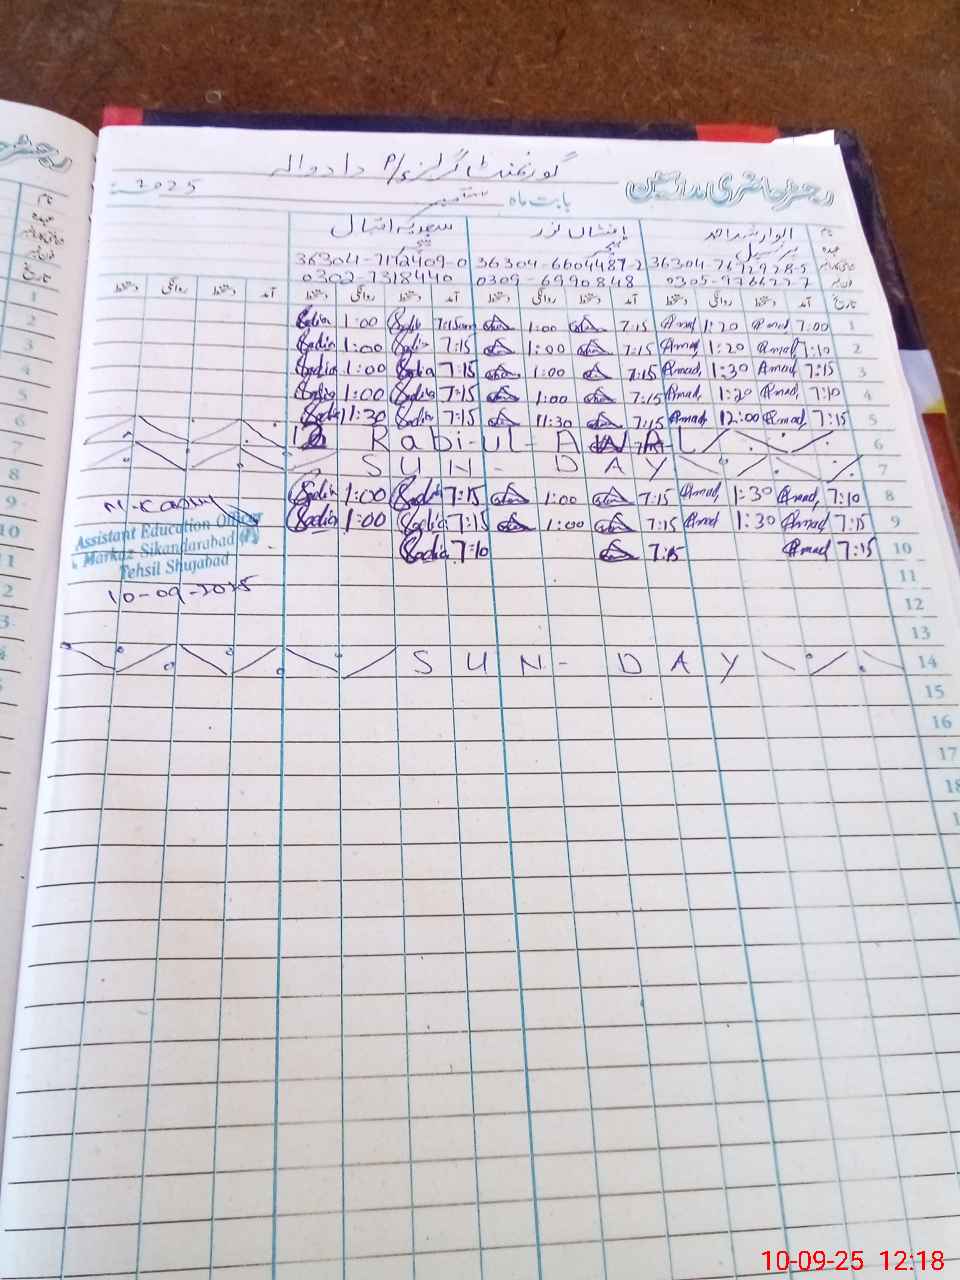 گورنمنٹ گرلز P/S دادوالہ
رجسٹر حاضری مدارسین
بابت ماہ ستمبر 2025ء
نام
سعدیہ اقبال
افشاں نذر
عہدہ
ٹیچر
ٹیچر
شناختی کارڈ نمبر
36304-7172409-0
36304-6604487-2
36304-7672928-5
فون نمبر
0302-7318440
0309-6990848
تاریخ
آمد دستخط روانگی دستخط آمد دستخط روانگی دستخط آمد دستخط روانگی دستخط آمد دستخط روانگی دستخط
Sadia 1:00 Sadia 7:15am 1:00 7:15 Amad 1:20 Amad 7:00 1
Sadia 1:00 Sadia 7:15 1:00 7:15 Amad 1:20 Amad 7:10 2
Sadia 1:00 Sadia 7:15 1:00 7:15 Amad, 1:30 Amad, 7:15 3
Sadia 1:00 Sadia 7:15 1:00 7:15 Amad, 1:20 Amad, 7:10 4
Sadia 11:30 Sadia 7:15 11:30 7:15 Amad, 12:00 Amad, 7:15 5
12 Rabi-ul-AWAL 6
SUN-DAY 7
Sadia 1:00 Sadia 7:15 1:00 7:15 Amad, 1:30 Amad, 7:10 8
Sadia 1:00 Sadia 7:15 1:00 7:15 Amad 1:30 Amad 7:15 9
Sadia 7:10 7:15 Amad 7:15 10
Assistant Education Officer
Markaz Sikandarabad
Tehsil Shujabad
10-09-2025
11
12
13
SUN-DAY 14
15
16
17
18
1
2
3
4
5
6
7
8
9
10
11
10-09-25 12:18